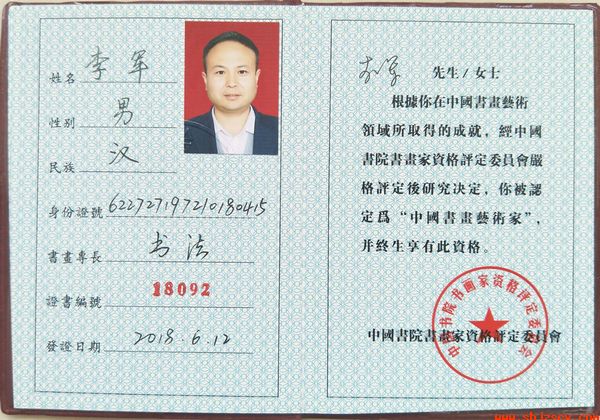 姓名 李军
性别 男
民族 汉
身份證號 622727197210180415
書畫專長 书法
證書編號 18092
發證日期 2018.6.12
李军 先生/女士
根據你在中國書畫藝術
領域所取得的成就，經中國
書院書畫家資格評定委員會嚴
格評定後研究决定，你被認
定爲“中國書畫藝術家”，
并終生享有此資格。
中國書院書畫家資格評定委員會
中国书院书画家资格评定委员会